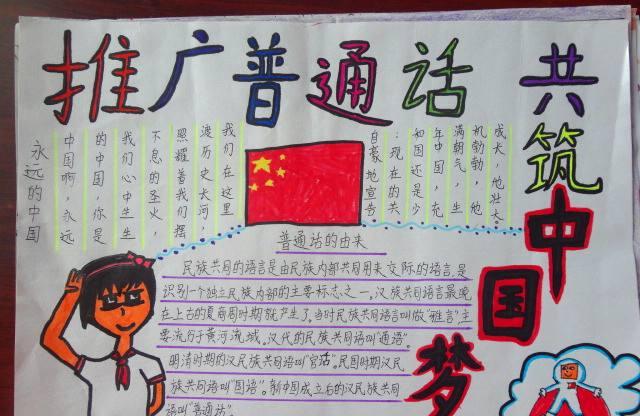 推广普通话
共筑中国梦
永远的中国
中国啊,永远
的中国 你是
我们心中生生
不息的圣火,
照耀着我们摆
渡历史长河,
我们在这里
自豪地宣告
:现在的共
如国还是少
年中国,充
满朝气,生
机勃勃,他
成长,他壮大
普通话的由来
民族共同的语言是由民族内部共同用来交际的语言,是
识别一个独立民族内部的主要标志之一。汉族共同语言最晚
在上古的夏商周时期就产生了,当时民族共同语言叫做“雅言”,主
要流行于黄河流域。汉代的民族共同语叫“通语”。
明清时期的汉民族共同语叫“官话”。民国时期汉民
族共同语叫“国语”。新中国成立后的汉民族共同
语叫“普通话”。